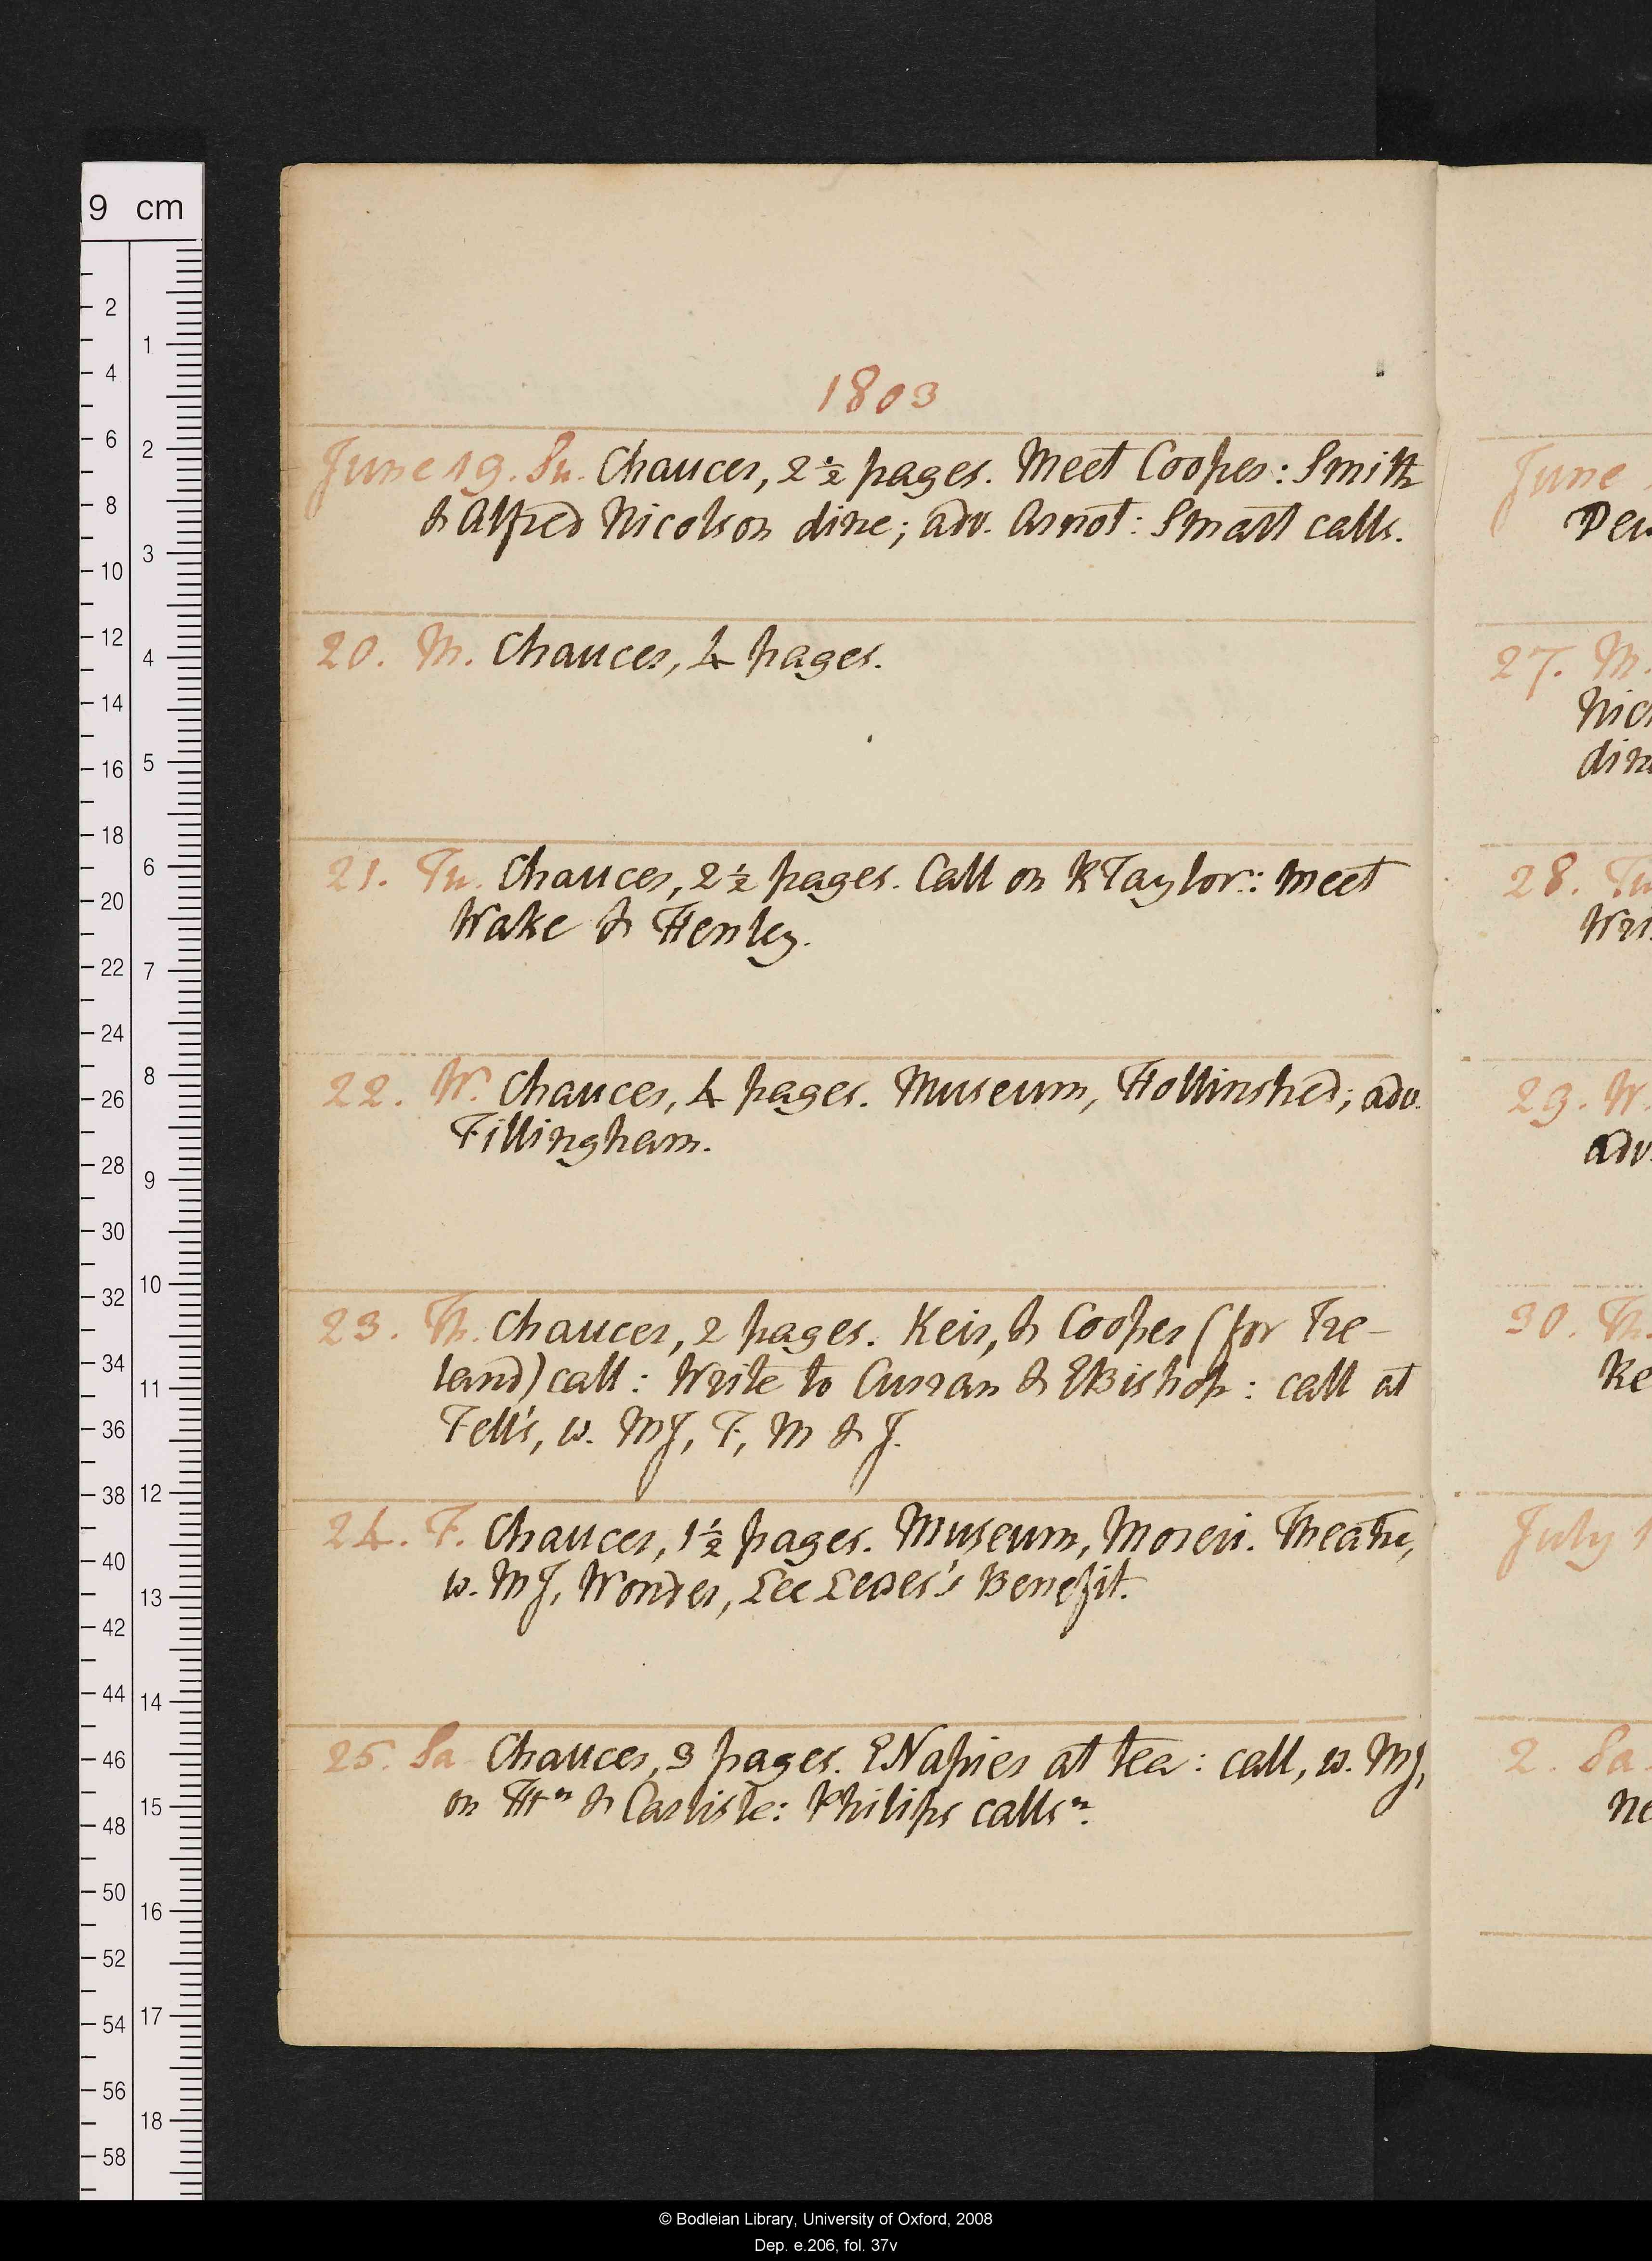 1803
June 19. Su. Chaucer, 2½ pages. Meet Cooper: Smith
& Alfred Nicolson dine; adv. Arnot: Smart calls.
20. M. Chaucer, 4 pages.
21. Tu. Chaucer, 2½ pages. Call on R Taylor: meet
Wake & Henley.
22. W. Chaucer, 4 pages. Museum, Hollinshed; adv.
Fillingham.
23. Th. Chaucer, 2 pages. Keir, & Cooper (for Ire-
land) call: Write to Curran & E Bishop: call at
Fell's, w. MJ, F, M & J.
24. F. Chaucer, 1½ pages. Museum, Moreri. Theatre,
w. MJ, Wonder, Lee Lewes's Benefit.
25. Sa Chaucer, 3 pages. E Napier at tea: call, w. MJ,
on Ht n & Carlisle: Philips calls n.
June
27. M.
28. Tu
29. W.
adv
30. Th.
July 1
2. Sa.
9 cm
2
4
6
8
10
12
14
16
18
20
22
24
26
28
30
32
34
36
38
40
42
44
46
48
50
52
54
56
58
1
2
3
4
5
6
7
8
9
10
11
12
13
14
15
16
17
18
© Bodleian Library, University of Oxford, 2008
Dep. e.206, fol. 37v